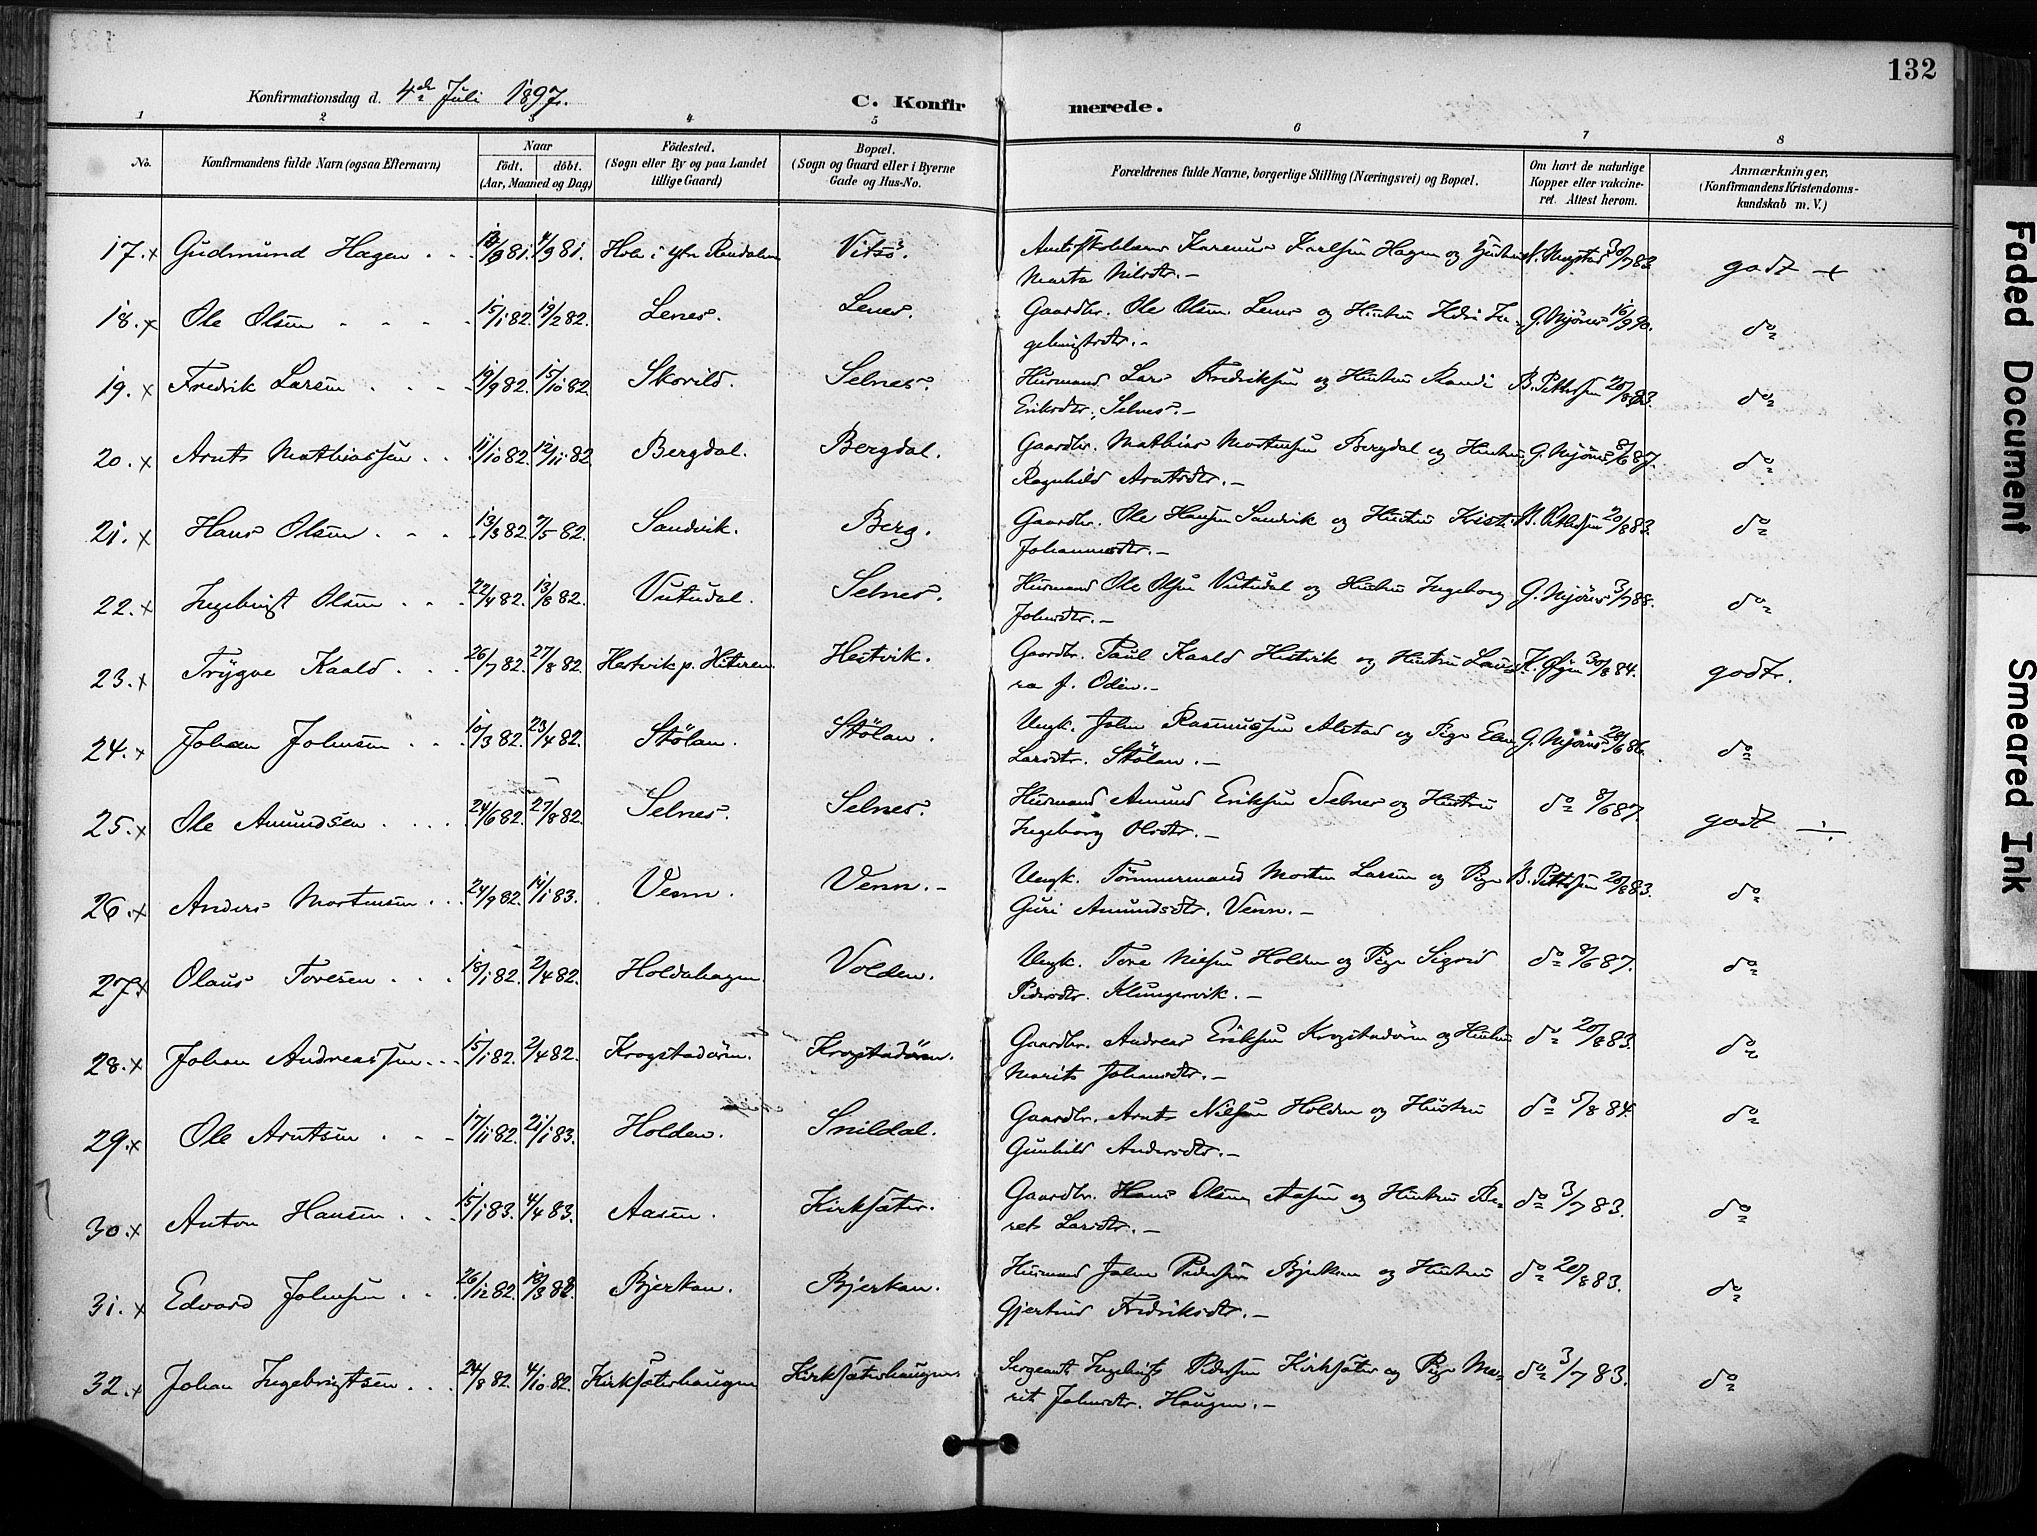 132
Konfirmationsdag d. 4de Juli 1897.
C. Konfirmerede.
1 2 3 4 5 6 7 8
No.
Konfirmandens fulde Navn (ogsaa Efternavn)
Naar
födt. döbt.
(Aar, Maaned og Dag)
Födested.
(Sogn eller By og paa Landet
tillige Gaard)
Bopæl.
(Sogn og Gaard eller i Byerne
Gade og Hus-No.
Forældrenes fulde Navne, borgerlige Stilling (Næringsvei) og Bopæl.
Om havt de naturlige
Kopper eller vakcine-
ret. Attest herom.
Anmærkninger,
(Konfirmandens Kristendoms-
kundskab m. V.)
17. x Gudmund Hagen 4/9 81. Hole i ytre Rendalen Vitsö. Karenus Karlsen Hagen og Hustru 30/7 83. godt
Marta Nilsdtr. -
18. x Ole Olsen 15/1 82. 19/2 82. Lenes. Lenes. Gaardbr. Ole Olsen Lenes og Hustru In- G. Mjönes 16/9 90. do
gebrigtsdtr. -
19. x Fredrik Larsen 19/9 82. 15/10 82. Skorild. Selnes. Husmand Lars Fredriksen og Hustru Randi B. Pettersen 20/8 83. do
Eriksdtr. Selnes. -
20. x Arnt Mathiassen 11/10 82. 12/11 82. Bergdal. Bergdal. Gaardbr. Mathias Mortensen Bergdal og Hustru G. Mjönes 8/6 87. do
Ragnhild Arntsdtr. -
21. x Hans Olsen 13/3 82. 7/5 82. Sandvik. Berg. Gaardbr. Ole Hansen Sandvik og Hustru Kirsti B. Pettersen 20/8 83. do
Johannesdtr. -
22. x Ingebrigt Olsen 22/4 82. 13/8 82. Vutudal. Selnes. Husmand Ole Olsen Vutudal og Hustru Ingeborg G. Mjönes 3/7 88. do
Johnsdtr. -
23. x Trygve Kaald 26/7 82. 27/8 82. Hestvik p. Hitteren Hestvik. Gaardbr. Paul Kaald Hestvik og Hustru Lau- K. Öyen 30/8 84. godt.
ra f. Odén. -
24. x Johan Johnsen 10/3 82. 23/4 82. Stölan. Stölan. Ungk. John Rasmussen Alstad og Pige Elen G. Mjönes 20/6 86. do
Larsdtr. Stölan. -
25. x Ole Amundsen 24/6 82. 27/8 82. Selnes. Selnes. Husmand Amund Eriksen Selnes og Hustru do 8/6 87 godt ÷
Ingeborg Olsdtr. -
26. x Anders Mortensen 24/9 82. 14/1 83. Venn. Venn. - Ungk. Tömmermand Morten Larsen og Pige B. Pettersen 20/8 83. do
Guri Amundsdtr. Venn. -
27. x Olaus Toresen 18/1 82. 2/4 82. Holdahagen. Volden. Ungk. Tore Nilsen Holden og Pige Sigrid do 8/6 87. do
Pedersdtr. Klungervik. -
28. x Johan Andreassen 15/1 82. 2/4 82. Krogstadören. Krogstadören. Gaardbr. Andreas Eriksen Krogstadören og Hustru do 20/8 83. do
Marit Johansdtr. -
29. x Ole Arntsen 17/11 82. 21/1 83. Holden. Snildal. Gaardbr. Arnt Nilsen Holden og Hustru do 5/8 84. do
Gunhild Andersdtr. -
30. x Anton Hansen 15/1 83. 4/4 83. Aasen. Kirksæter. Gaardbr. Hans Olsen Aasen og Hustru Be- do 3/7 83. do
ret Larsdtr. -
31. x Edvard Johnsen 26/12 82. Bjerkan. Bjerkan. Husmand John Pedersen Bjerkan og Hustru do 20/8 83. do
Gjertrud Fredriksdtr. -
32. x Johan Ingebrigtsen 24/8 82. 4/10 82. Kirksæterhaugen Kirksæterhaugen Sergeant Ingebrigt Pedersen Kirksæter og Pige Ma- do 3/7 83. do
rit Johnsdtr. Haugen. -
Faded Document
Smeared Ink